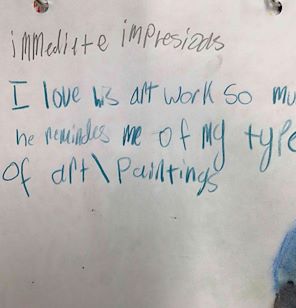 immediate impresions
I love his art work so mu
he remindes me of my type
of art\Paintings